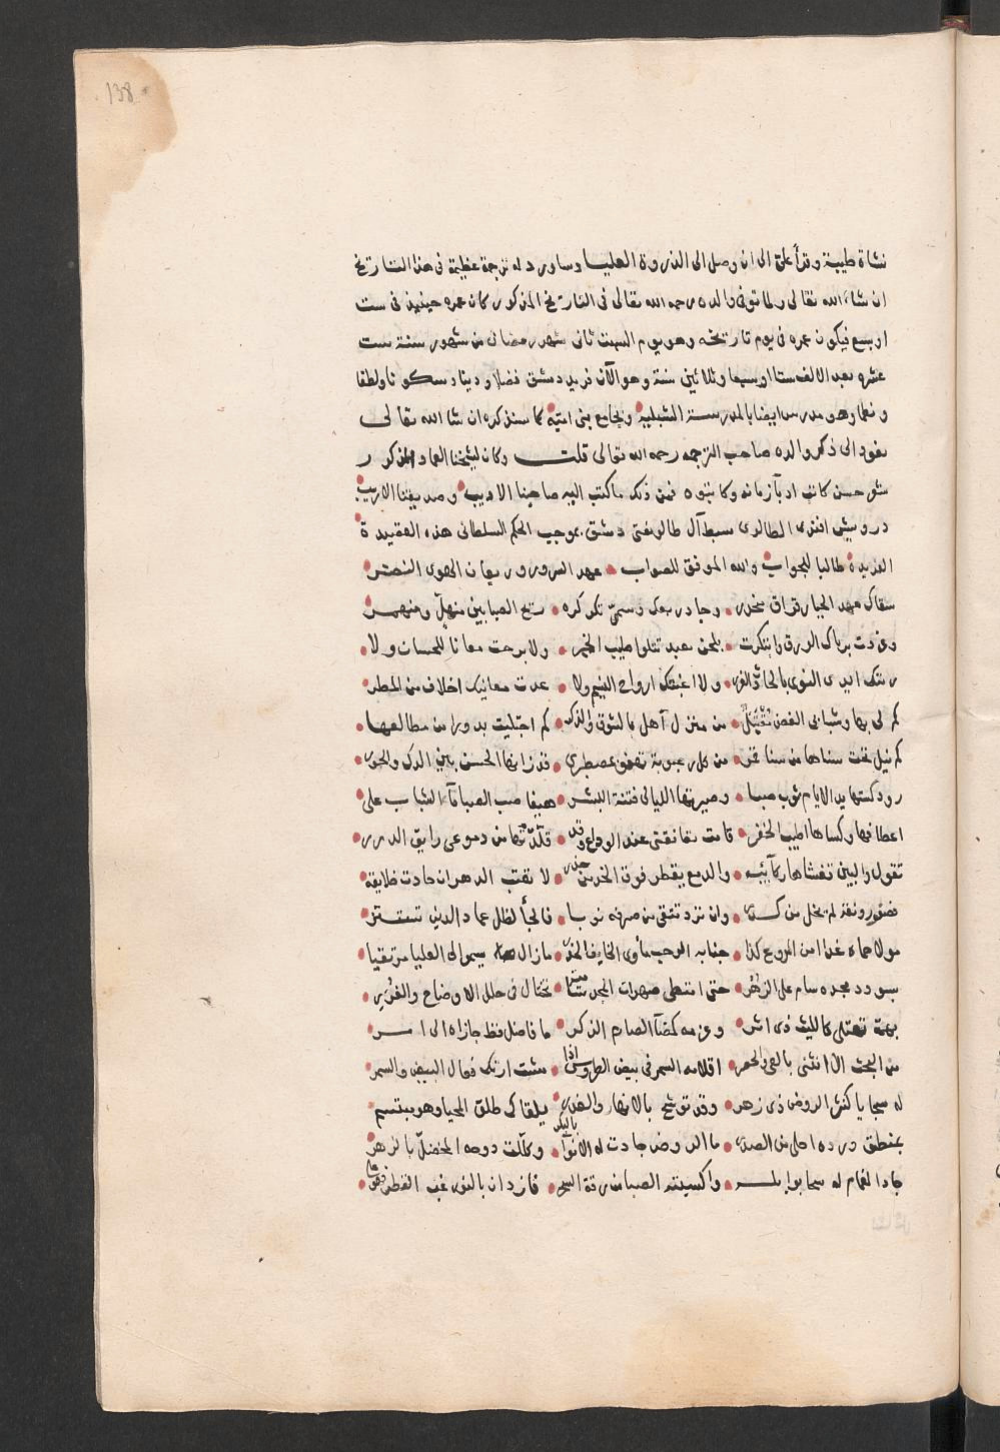 138
نشاة طيبة وقرأ على الى ان وصل الى الذروة العليا وساورد له ترجمة عظيمة فى هذا التاريخ
ان شاء الله تعالى ولما توفى والده رحمه الله تعالى فى التاريخ المذكور كان عمره حينيذ فى ست
اربع فيكون عمره فى يوم تاريخه وهو يوم السبت ثانى شهر رمضان من شهور سنة ست
عشره بعد الالف ستا او سبعا وثلاثين سنة وهو الآن فريد دمشق فضلا ودينا وسكونا ولطفا
ونعما وهو مدرس ايضا بالمدرسة الشبلية وبجامع بنى امية كما سنذكره ان شا الله تعالى
نعود الى ذكر والده صاحب الترجمه رحمه الله تعالى قلت وكان لشيخنا العماد المذكور
شعر حسن كاتب ادبآ زمانه وكاتبوه فمن ذلك ما كتب اليه صاحبنا الاديب وصديقنا الاريب
درويش افندى الطالوى سبط آل طالو مفتى دمشق بموجب الحكم السلطانى هذه القصيدة
الفريدة طالبا للجواب والله الموفق للصواب عهد السرور وريعان الهوى النضر
سقاك عهد الحيا رقراق منحدر وجاد ربعك وسمىّ تكوكره ريح الصبا بين منهلّ ومنهمر
وغردت برباك الورق وابتكرت بلحن معبد تتلوا طيب الخبر ولا برحت مغانا للحسان ولا
رمتك ايدى النوى بالحادث الغير ولا اغبتك ارواح النسيم ولا عدت مغانيك اخلاف من المطر
كم لى بها وشبابى الغض مقتبل من منزل آهل بالشوق والذكر كم اجتليت بدورا من مطالعها
كم نيل تحت سناها من سنا قمر من كل رعبوبة
رود كستها يد الايام ثوب صبا وصيرتها الليالى فتنة البشر هيفا صب الصبا مآء الشباب على
اعطافها وكساها اطيب الخفر قامت تعانقنى عند الوداع وقد قلّدتها من دموعى رايق الدرر
تقول والبين تغشاها ركآئبه والدمع يقطر فوق الخد من حذر لا تعتب الدهر ان حادت خلايقه
فصفو رونقه لم يخل من كدر وان ترد تتقى من صرفه نوبا فالجأ لظل عماد الدين تستتر
مولا حماه غدا امن المروع كذا جنابه الرحب مأوى الخايف الحذر ما زال يسمو الى العليا مرتقيا
بسودد مجده سام على الزهر حتى امتطى صهوات المجد تختال فى حلل الاوضاح والغرر
بهمة تعتلى كالليث ذى اشر وعزمه كمضآ الصارم الذكر ما فاضل فظ جازاه الى امر
من البحث الا انثنى بالعى والحصر اقلامه السمر فى بيض الطروس اذا مشت ارتك فعال البيض والسمر
له سجايا كنشر الروض ذى زهر وقد توشح بالانهار والغدر يلقاك طلق المحيا وهو مبتسم
بمنطق ورده احلى من الصدر ما الروض جادت له الانوآ بالبكر وكللت دوحه المخضلّ بالزهر
جاد الغمام له سحا بوابله واكسبته الصبا من رقة السحر فازدان بالنور غب القطر